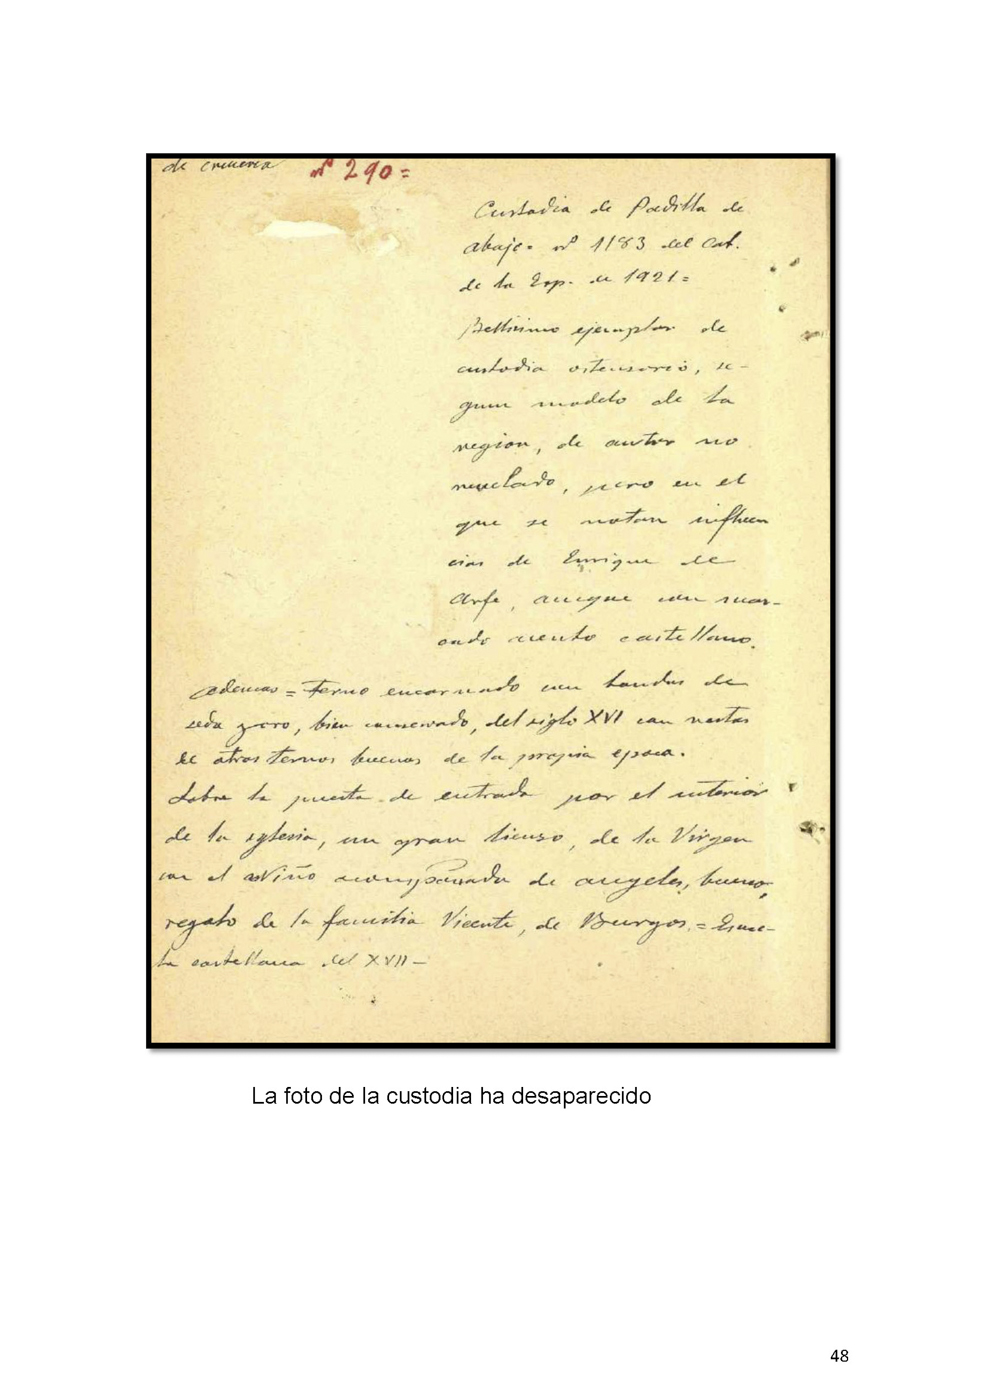 nº 290=
Custodia de Padilla de
abajo= nº 1183 del Cat.
de la Exp. de 1921=
Bellisimo ejemplar de
custodia ostensorio, se-
gun modelo de la
region, de autor no
revelado, pero en el
que se notan influen
cias de Enrique de
Arfe, aunque con mar-
cado acento castellano.
ademas = Terno encarnado con bandas de
seda y oro, bien conservado, del siglo XVI con restos
de otros ternos buenos de la propia epoca.
Sobre la puerta de entrada por el interior
de la iglesia, un gran lienzo, de la Virgen
con el Niño acompañada de angeles, bueno,
regalo de la familia Vicente, de Burgos. = Escue-
la castellana del XVII-
La foto de la custodia ha desaparecido
48